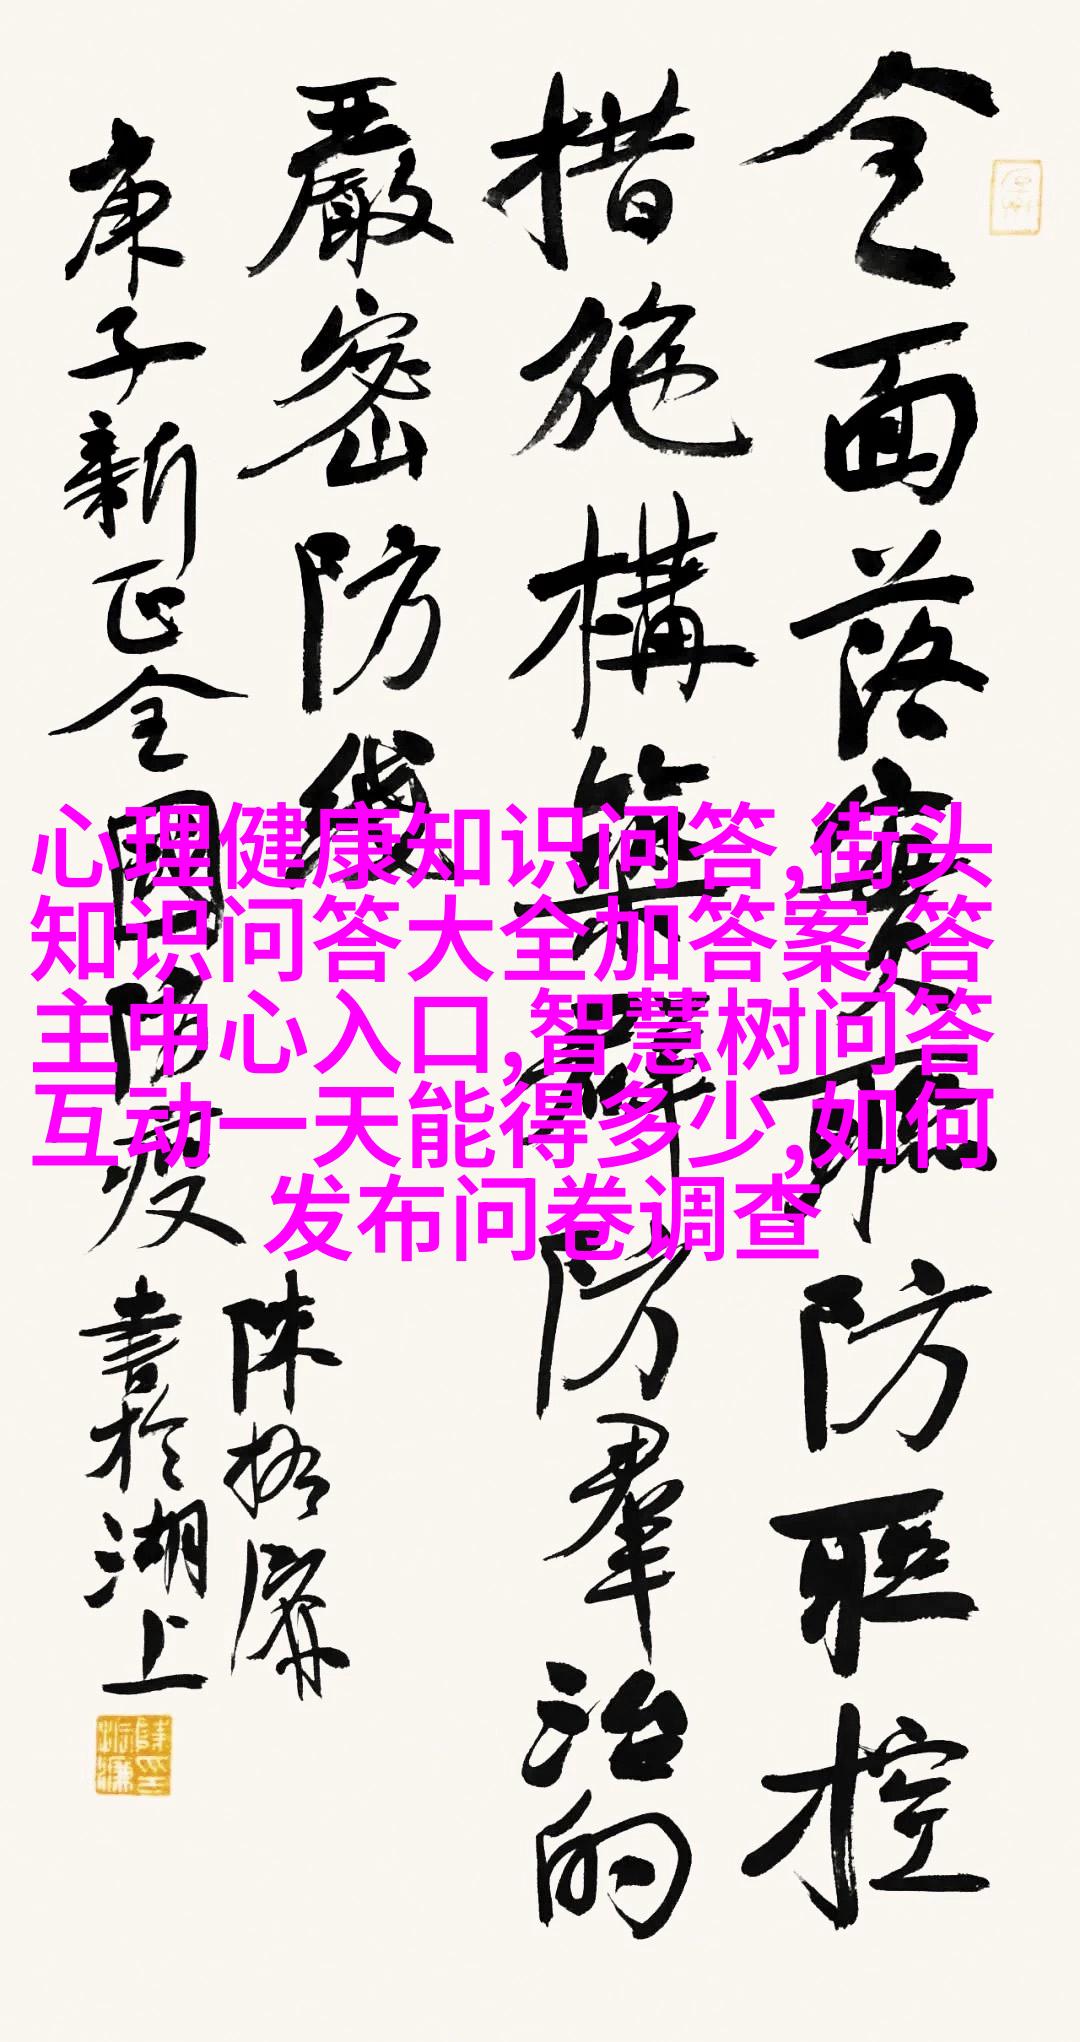 全面落實聯防聯控
措施構築群防羣治的
嚴密防線
庚子新正全國防疫
陳振濂
書於湖上
心理健康知识问答,街头
知识问答大全加答案,答
主中心入口,智慧树问答
互动一天能得多少,如何
发布问卷调查